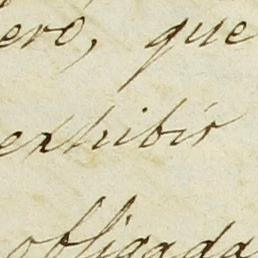 eró, que
exhibir
obligada